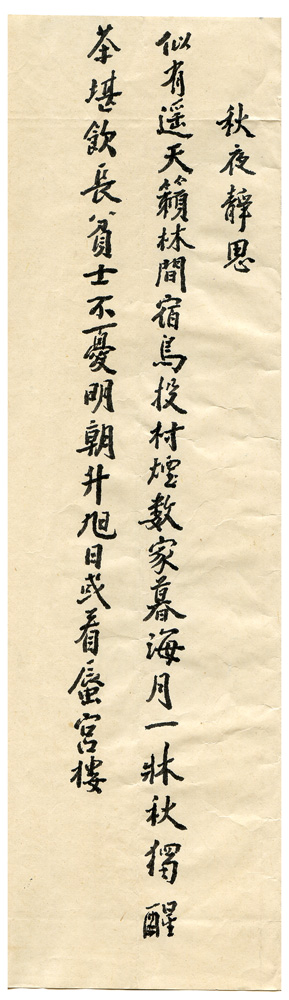 秋夜靜思
似有遥天籟林間宿鳥投村煙數家暮海月一牀秋獨醒
茶堪飲長貧士不憂明朝升旭日或看蜃宮樓